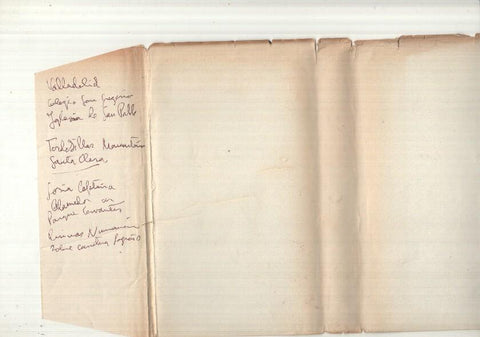 Valladolid
Colegio San Gregorio
Iglesia de San Pablo
Tordesillas Monasterio
Santa Clara
Soria Cafetería
Alameda
Parque Cervantes
Ruinas Numancia
sobre carretera Logroño